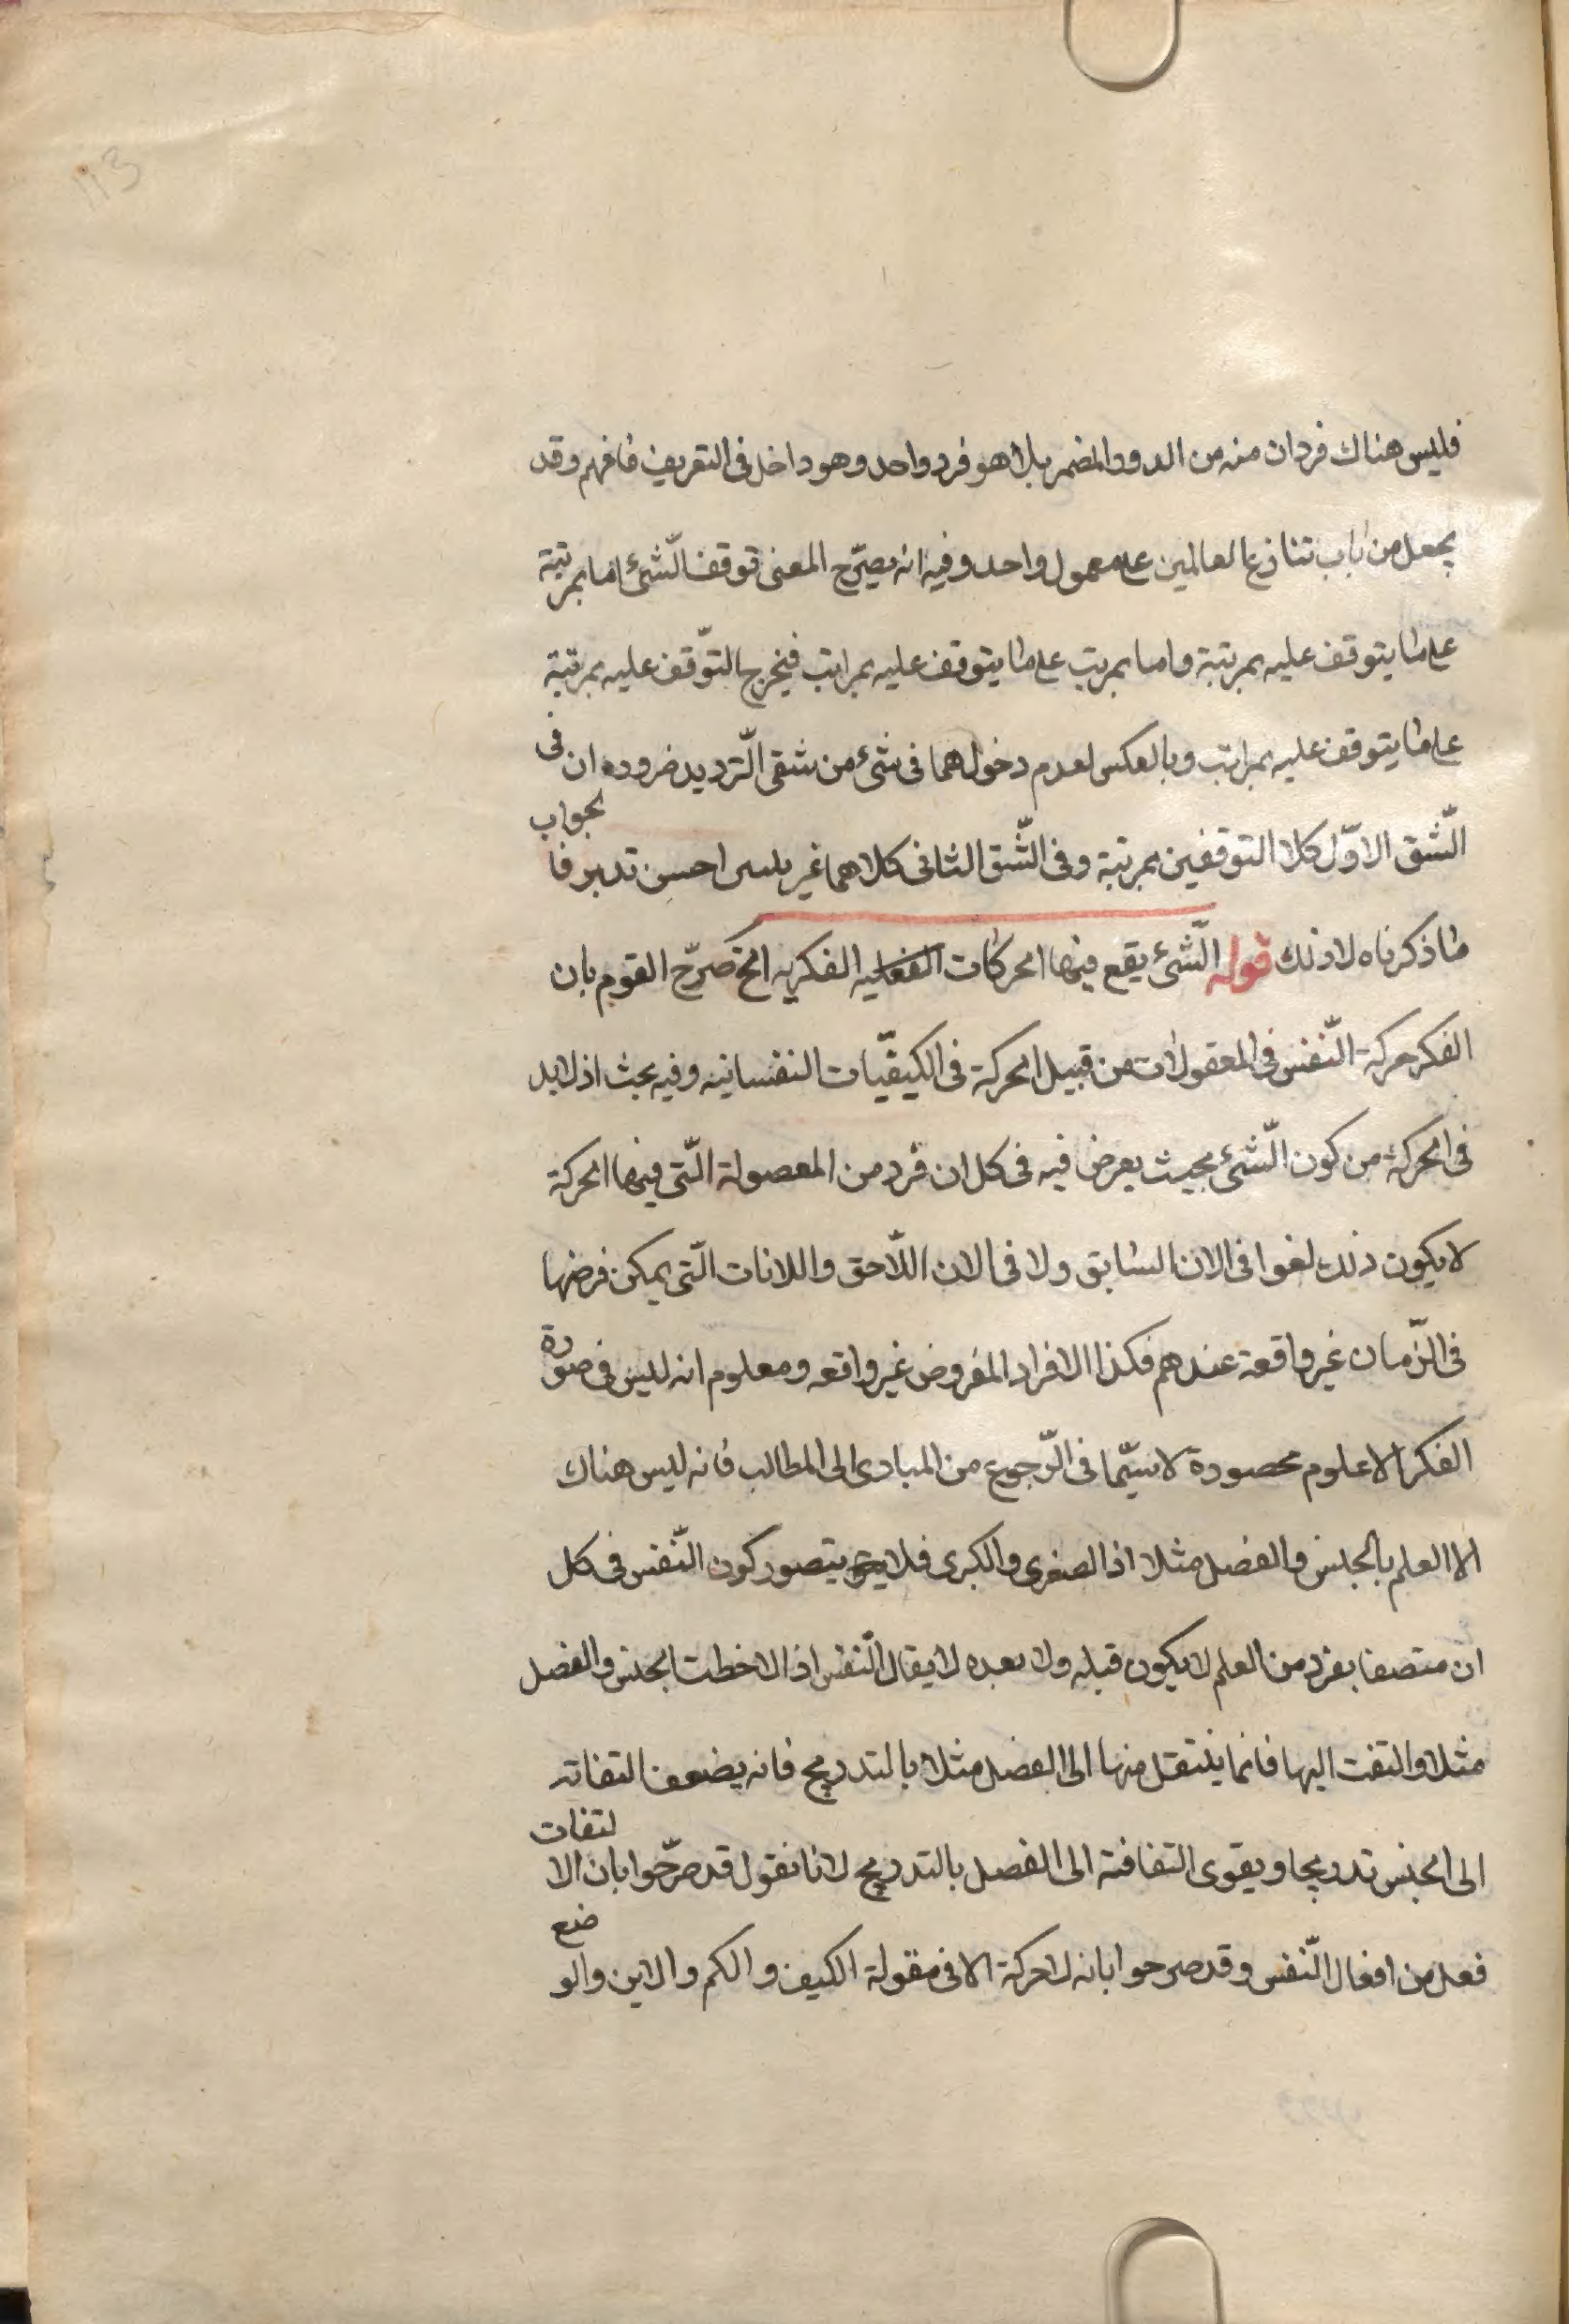 113
فليس هناك فردان منه من الدور المضمر بل لا هو فرد واحد وهو داخل فى التعريف فافهم وقد
يجعل من باب تنازع العالمين على معمول واحد وفيه انه يصرّح المعنى توقف الشّئ اما بمرتبة
على ما يتوقف عليه بمرتبة واما بمرتب على ما يتوقف عليه بمراتب فيخرج التوّقف عليه بمرتبة
على ما يتوقف عليه بمراتب وبالعكس لعدم دخولهما فى شئ من شقى التّرديد ضروره ان فى
الشّق الاوّل كلا التوقفين بمرتبة وفى الشّق الثانى كلاهما غير احسن تدبر فالجواب
ما ذكرناه لا ذلك قوله الشّئ يقع فيها الحركات الفكريه الخ صرّح القوم بان
الفكر حركة النّفس فى المعقولات من قبيل الحركة فى الكيفيّات النفسانيه وفيه بحث اذ لا بد
فى الحركة من كون الشّئ بحيث يعرض فيه فى كل ان فرد من المعصولة الّتى فيها الحركة
لا يكون ذلك لغوا فى الان السابق ولا فى الان اللّاحق واللانات الّتى يمكن فرضها
فى الزّمان غير واقعة عندهم فكذا الافراد المفروض غير واقعه ومعلوم انه ليس فى صورة
الفكر الا علوم محصورة لا سيّما فى الرّجوع من المبادى الى المطالب فانه ليس هناك
الا العلم بالجنس والفصل مثلا اذ الصغرى والكبرى فلا يتصور كون النّفس فى كل
ان متصفا بفرد من العلم لا يكون قبله ولا بعده لا يقال النّفس اذا لاخطت الجنس والفصل
مثلا والتفت اليها فانما ينتقل منها الى الفصل مثلا بالتدريج فانه يضعف التفاته
الى الجنس تدريجا ويقوى التفافته الى الفصل بالتدريج لانا نقول قد صرّحوا بان الالتفات
فعل من افعال النّفس وقد صرحوا بانه لا حركة الا فى مقولة الكيف والكم والاين والوضع